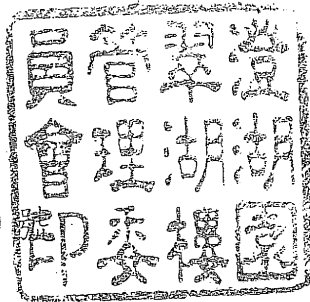 澄湖園
翠湖樓
管理委
員會印